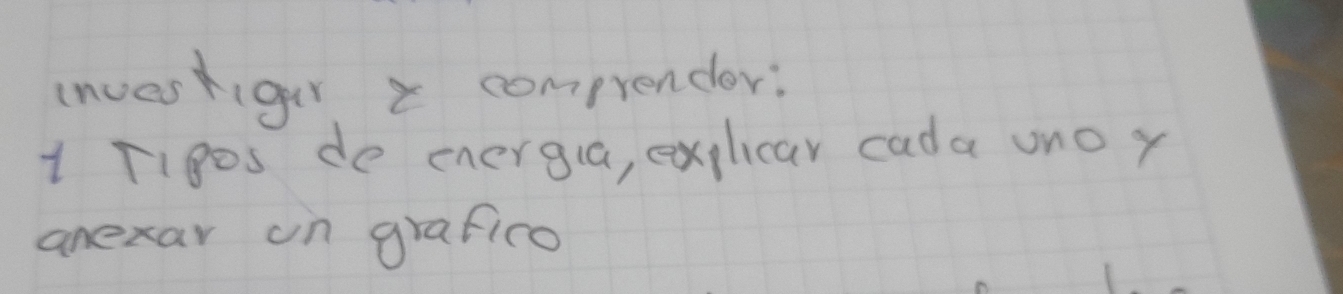 investigar y comprender:
1 Tipos de energia, explicar cada uno y
anexar un grafico